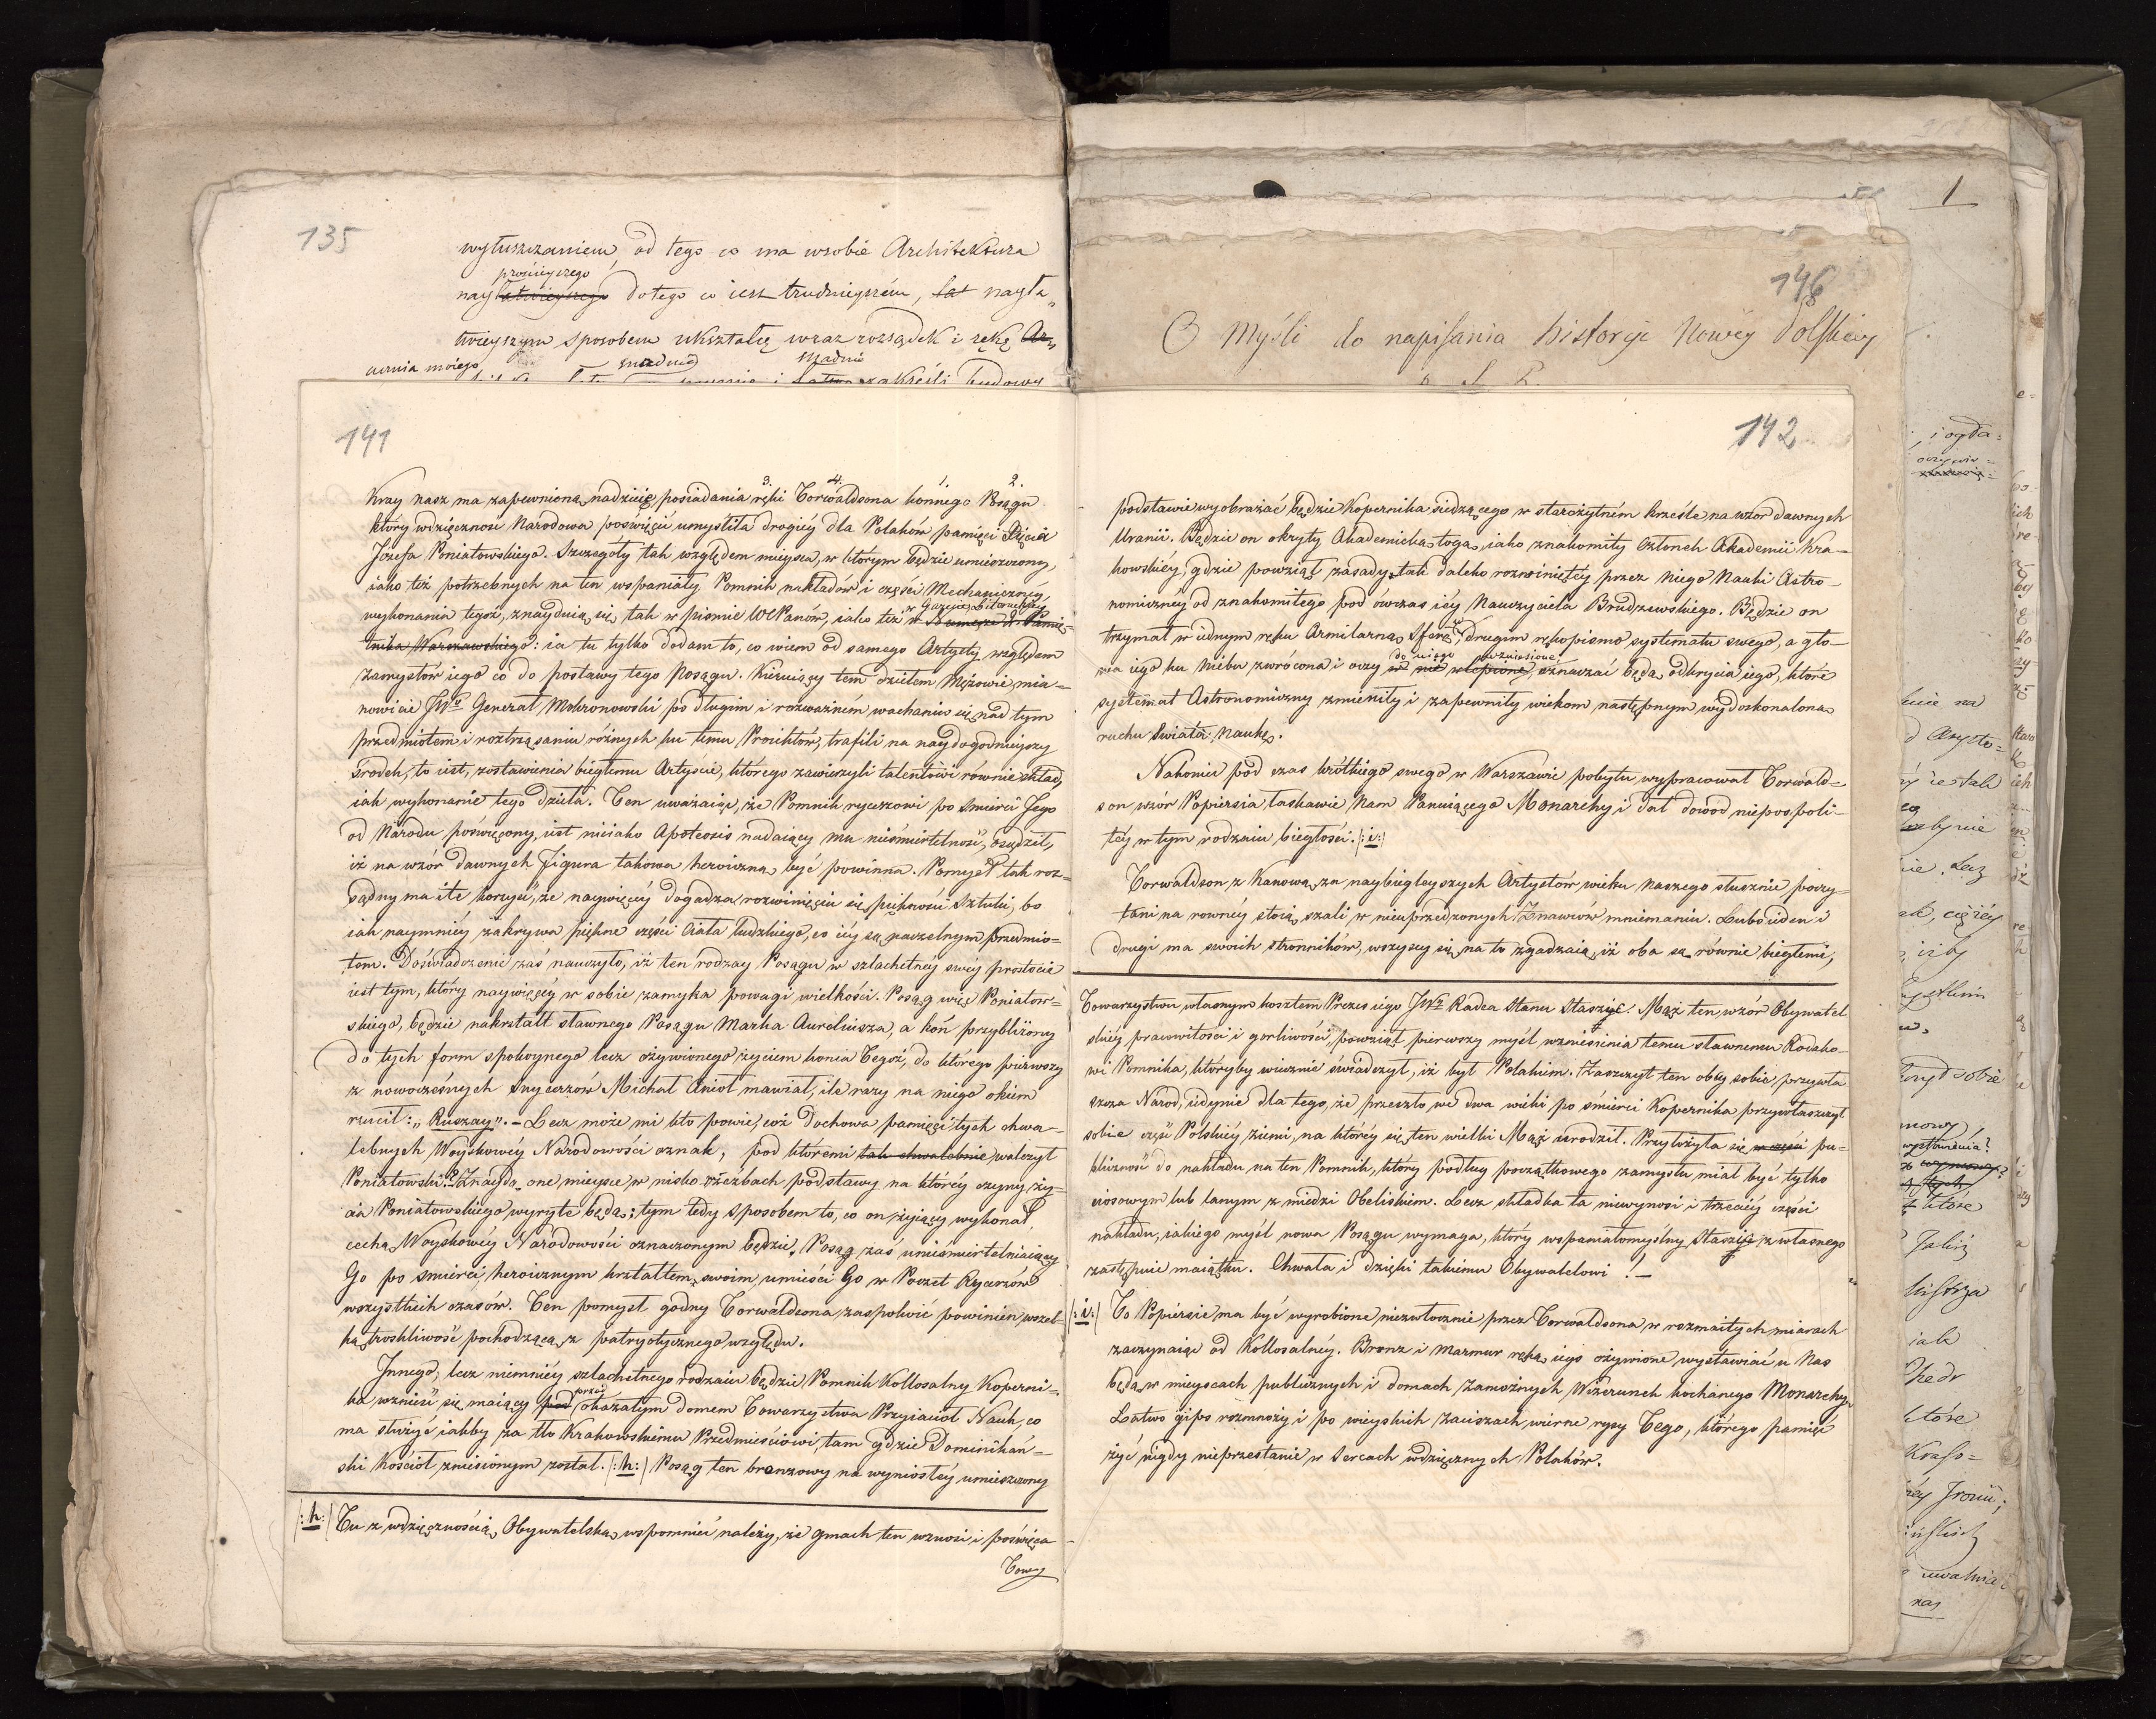 135
wyłuszczaniem, od tego co ma w sobie Architektura
prościeyszego
nay łatwieyszego do tego co iest trudnieyszém, nayła„
twieyszym sposobem ukształcę wraz rozsądek i rękę
ucznia moiego
snadnie
zakreśli budowy
141
3. 4. 1. 2.
Kray nasz ma zapewnioną nadzieię posiadania ręki Torwaldsona konnego Posągu
który wdzięczność Narodowa poswięcić umyśliła drogiéy dla Polaków pamięci Xięcia
Józefa Poniatowskiego. Szczegóły tak względem mieysca, w którym będzie umieszczony,
iako też potrzebnych na ten wspaniały Pomnik nakładów i części Mechanicznéy
w Gazecie Literackiéy
wykonania tegoż, znayduią się tak w pismie WPanów, iako też w Numerze Pamię=
tnika Warszawskiego: ia tu tylko dodam to, co wiem od samego Artysty względem
zamysłów iego co do postawy tego Posągu. Kieruiący tem dziełem Mężowie, mia=
nowicie JW. Generał Mokronowski po długim i rozważném wachaniu się nad tym
przedmiotem i roztrząsaniu różnych ku temu Proiektów, trafili na naydogodnieyszy
środek, to iest, zostawienia biegłemu Artyscie, którego zawierzyli talentowi równie skład,
iak wykonanie tego dzieła. Ten uważaiąc, że Pomnik rycerzowi po śmierci Jego
od Narodu poświęcony, iest nieiako Apoteosis nadaiący mu nieśmiertelność, osądził,
iż na wzór dawnych figura takowa heroiczną być powinna. Pomysł tak roz=
sądny ma ile korzyść, że naywięcéy dogadza rozwinięciu się piękności Sztuki, bo
iak naymniéy zakrywa piękne części Ciała ludzkiego, co iéy są naczelnym przedmio=
tem. Doświadczenie zaś nauczyło, iż ten rodzay Posągu w szlachetnéy swéy prostocie
iest tym, który naywięcéy w sobie zamyka powagi wielkości. Posąg więc Poniatow=
skiego, będzie nakształt sławnego Posągu Marka Aureliusza, a koń przybliżony
do tych form spokoynego lecz ożywionego życiem konia Tegoż, do którego pierwszy
z nowoczesnych Snycerzów Michał Anioł mawiał, ile razy na niego okiem
rzucił: „Ruszay". – Lecz może mi kto powie, coż dochowa pamięci tych chwa=
lebnych Woyskowéy Narodowości oznak, pod któremi tak chwalebnie walczył
Poniatowski? Znaydą one mieysce w nisko-rzeźbach podstawy na któréy czyny, ży=
cia Poniatowskiego wyryte będą; tym tedy sposobem to, co on żyiący wykonał,
cechą Woyskowéy Narodowości oznaczonym będzie. Posąg zaś unieśmiertelniaiący
Go po śmierci, heroicznym kształtem swoim, umieści Go w Poczet Rycerzów
wszystkich czasów. Ten pomysł godny Torwaldsona zaspokoić powinien wszel=
ką troskliwość pochodzącą z patryotycznego względu.
Innego, lecz niemniéy szlachetnego rodzaiu będzie Pomnik Kollosalny Koperni=
przed
ka, wznieść się maiący pod okazałym domem Towarzystwa Przyiaciół Nauk, co
ma służyć iakby za tło Krakowskiemu Przedmieściowi, tam gdzie Dominikań=
ski Kościół zniesionym został. |:h:| Posąg ten bronzowy na wyniosłéy umieszczony
|:h:| Tu z wdzięcznością Obywatelską wspomnieć należy, że gmach ten wznosi i poświęca
Towy
1
146
O Myśli do napisania historyi Nowéy Polskiéy
142
podstawie wyobrażać będzie Kopernika siedzącego w starożytném krześle na wzór dawnych
Uranii. Będzie on okryty Akademicką togą, iako znakomity Członek Akademii Kra=
kowskiéy, gdzie powziął zasady tak daleko rozwiniętéy przez niego Nauki Astro=
nomiczney od znakomitego pod owczas iéy Nauczyciela Brudzewskiego. Będzie on
trzymał w iednym ręku Armilarną Sferę, w drugim rękopismo systematu swego, a gło=
do niego wzniesione
wa iego ku Niebu zwrócona i oczy w nie wlepione, oznaczać będą odkrycia iego, które
systemat Astronomiczny zmieniły i zapewniły wiekom następnym wydoskonaloną
ruchu Świata Naukę.
Nakoniec pod czas krótkiego swego w Warszawie pobytu wypracował Torwald=
son wzór Popiersia łaskawie Nam Panuiącego Monarchy i dał dowod niepospoli=
téy w tym rodzaiu biegłości. |:i:|
Torwaldson z Kanową, za naybiegleyszych Artystów wieku Naszego słusznie poczy=
tani na równéy stoią szali w nieuprzedzonych Znawców mniemaniu. Lubo ieden i
drugi ma swoich stronników, wszyscy się na to zgadzaią, iż oba są równie biegłemi,
Towarzystwu własnym kosztem Prezes iego JW. Radca Stanu Staszyc. Mąż ten, wzór Obywatel
skiéy prawowitości i gorliwości, powziął pierwszy myśl wzniesienia temu sławnemu Rodako=
wi Pomnika, któryby wiecznie świadczył, iż był Polakiem. Zaszczyt ten obcy sobie przywła
szcza Naród, iedynie dla tego, że przeszło we dwa wieki po śmierci Kopernika przywłaszczył
sobie część Polskiéy ziemi, na któréy się ten wielki Mąż urodził. Przyłożyła się w części pu=
bliczność do nakładu na ten Pomnik, który podług początkowego zamysłu miał być tylko
ciosowym lub lanym z miedzi Obeliskiem. Lecz składka ta niewynosi i trzeciéy części
nakładu, iakiego myśl nowa Posągu wymaga, który wspaniałomyślny Staszyc z własnego
zastępuie maiątku. Chwała i dzięki takiemu Obywatelowi! –
|:i:| To Popiersie ma być wyrobione niezwłocznie przez Torwaldsona w rozmaitych miarach
zaczynaiąc od Kollosalnéy. Bronz i Marmur ręką iego ożywione wystawiać u Nas
będą w mieyscach publicznych i domach Zamożnych Wizerunek kochanego Monarchy.
Łatwo gips rozmnoży i po wieyskich Zaciszach, wierne rysy Tego, którego pamięć
żyć nigdy nieprzestanie w Sercach wdzięcznych Polaków.